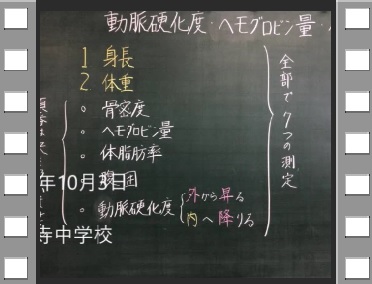 動脈硬化度・ヘモグロビン量・
1 身長
2 体重
。骨密度
。ヘモグロビン量
。体脂肪率
腹囲
。動脈硬化度
外から昇る
内へ降りる
全部で7つの測定
年10月3日
寺中学校